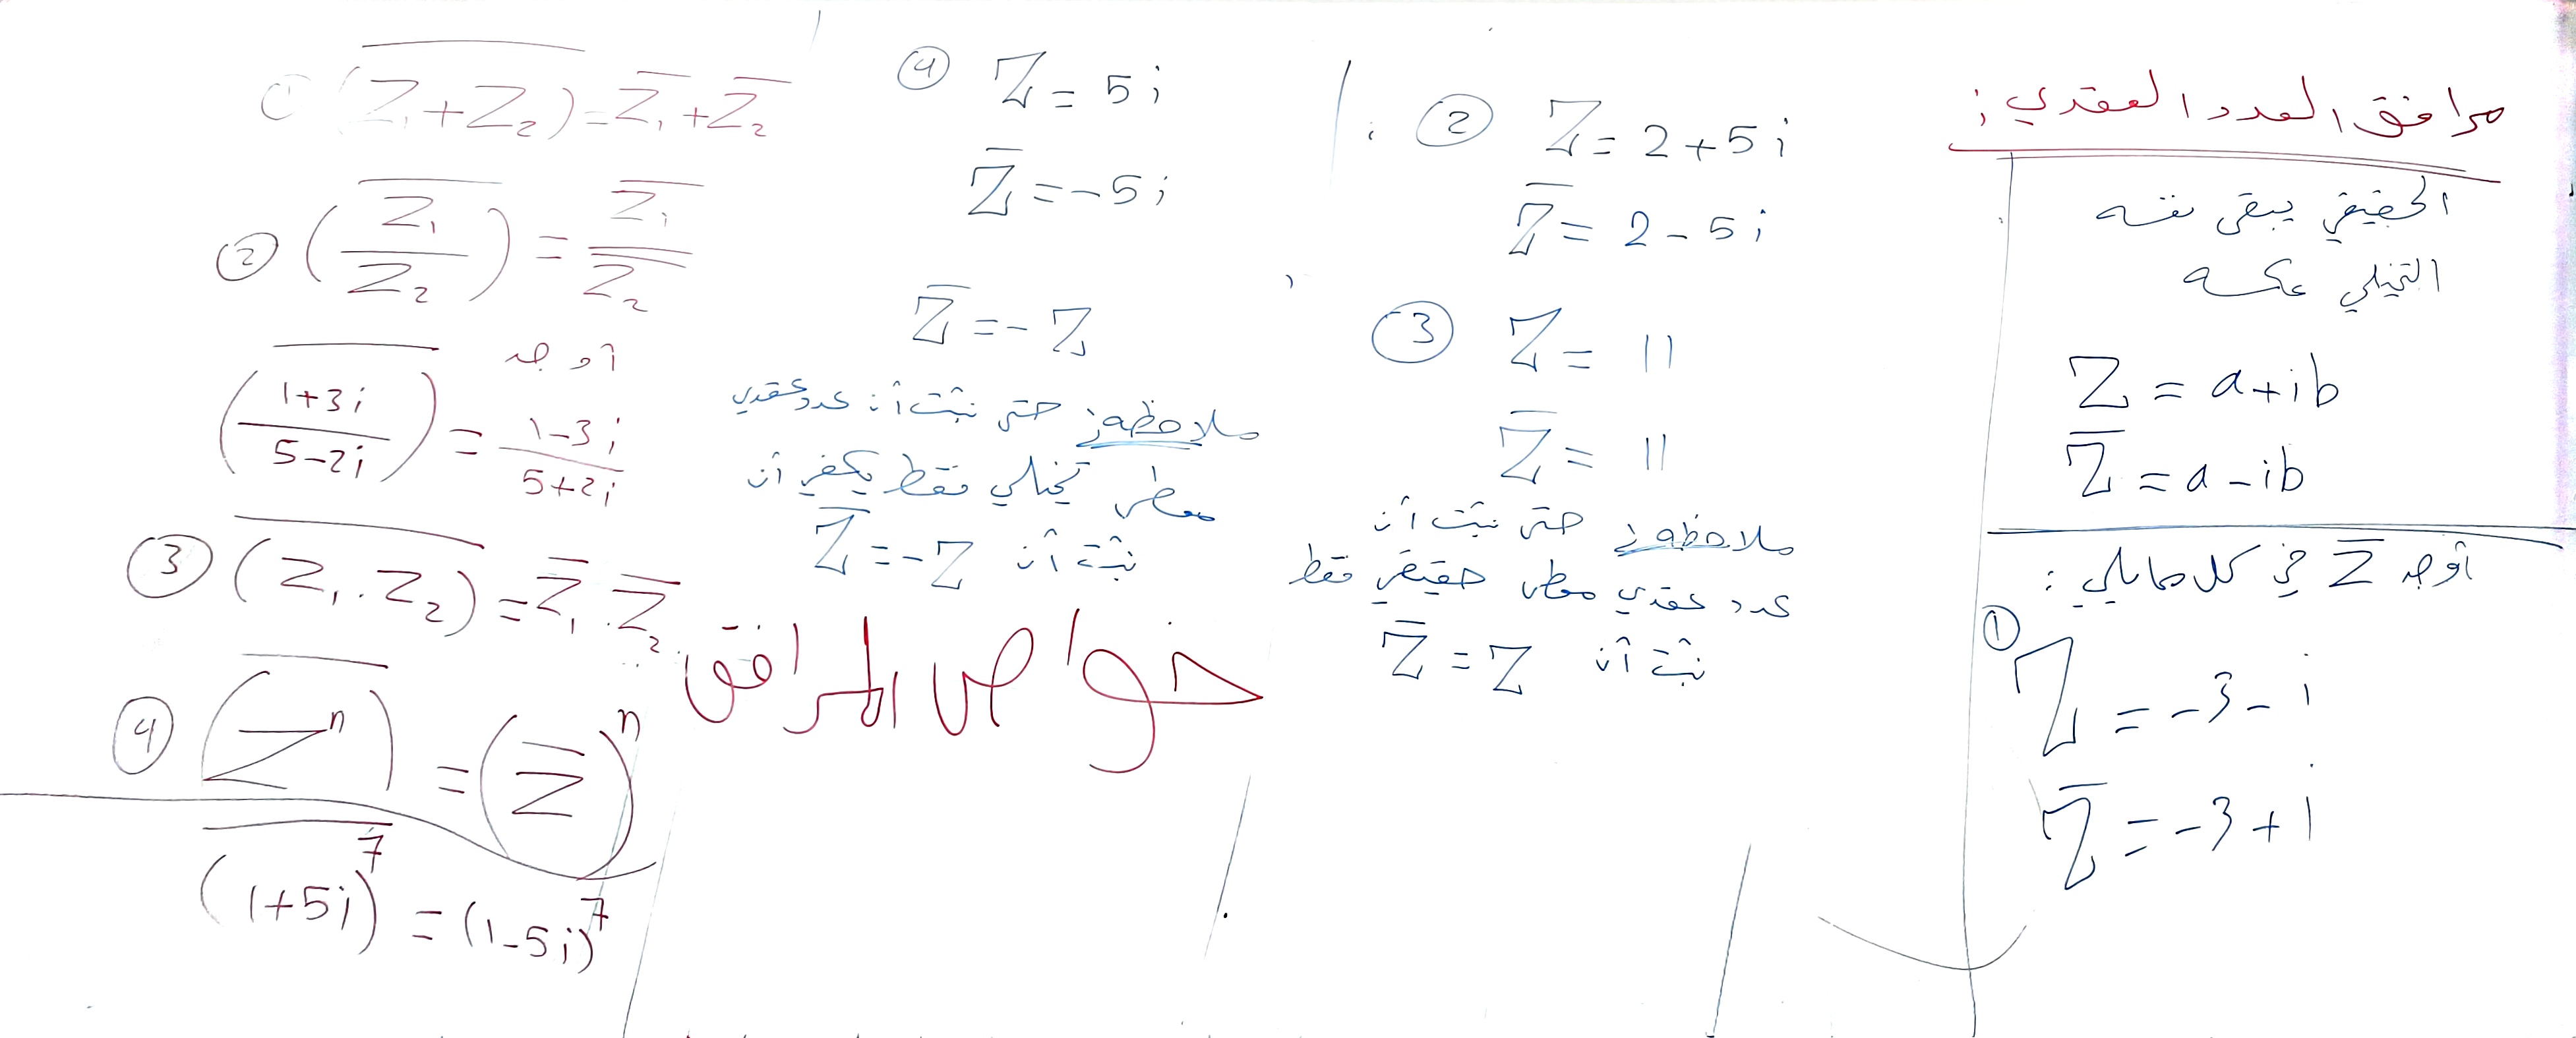 مرافق العدد العقدي :
الحقيقي يبقى نفسه
التخيلي عكسه
Z = a+ib
Z̅ = a-ib
أوجد Z̅ في كل مايلي :
① Z = -3-i
Z̅ = -3+i
② Z = 2+5i
Z̅ = 2-5i
③ Z = 11
Z̅ = 11
ملاحظة: حتى نثبت أن
عدد عقدي معطى حقيقي فقط
نثبت أن Z̅ = Z
④ Z = 5i
Z̅ = -5i
Z̅ = -Z
ملاحظة: حتى نثبت أن عدد عقدي
معطى تخيلي فقط يكفي أن
نثبت أن Z̅ = -Z
خواص المرافق
① \overline{(Z₁+Z₂)} = Z̅₁+Z̅₂
② \overline{(\frac{Z₁}{Z₂})} = \frac{Z̅₁}{Z̅₂}
أوجد
\overline{(\frac{1+3i}{5-2i})} = \frac{1-3i}{5+2i}
③ \overline{(Z₁.Z₂)} = Z̅₁.Z̅₂
④ \overline{(Zⁿ)} = (Z̅)ⁿ
\overline{(1+5i)⁷} = (1-5i)⁷